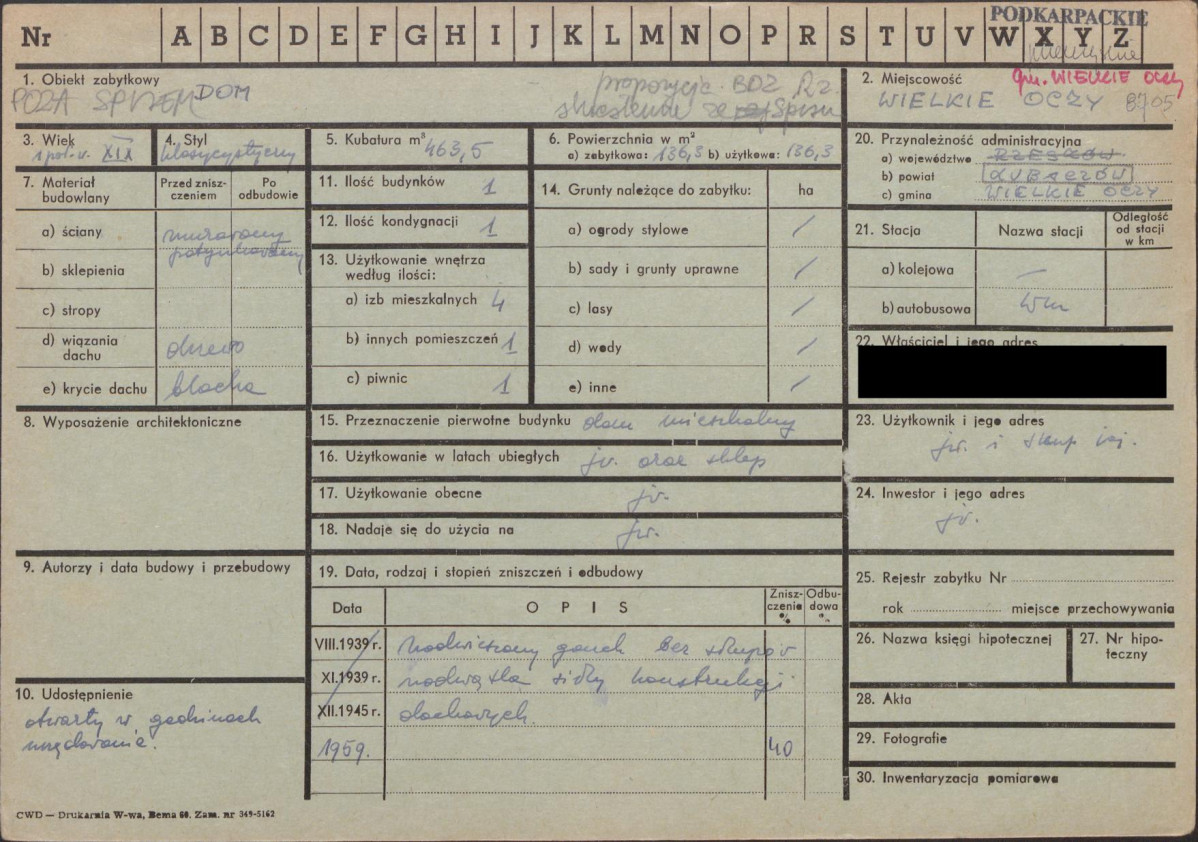 PODKARPACKIE
Nr A B C D E F G H I J K L M N O P R S T U V W X Y Z
1. Obiekt zabytkowy
POZA SPISEM DOM
propozycja BDZ Rz.
skreślenia ze Spisu
2. Miejscowość
gm. WIELKIE OCZY
WIELKIE OCZY 8705
3. Wiek
1 poł. w. XIX
4. Styl
klasycystyczny
5. Kubatura m³ 463,5
6. Powierzchnia w m²
a) zabytkowa: 136,3 b) użytkowa: 136,3
20. Przynależność administracyjna
a) województwo RZESZÓW
b) powiat LUBACZÓW
c) gmina WIELKIE OCZY
7. Materiał budowlany
Przed zniszczeniem
Po odbudowie
a) ściany murowany
potynkowany
b) sklepienia
c) stropy
d) wiązania dachu drewo
e) krycie dachu blacha
11. Ilość budynków 1
12. Ilość kondygnacji 1
13. Użytkowanie wnętrza
według ilości:
a) izb mieszkalnych 4
b) innych pomieszczeń 1
c) piwnic 1
14. Grunty należące do zabytku: ha
a) ogrody stylowe /
b) sady i grunty uprawne /
c) lasy /
d) wody /
e) inne /
21. Stacja Nazwa stacji Odległość od stacji w km
a) kolejowa –
b) autobusowa wm
22. Właściciel i jego adres
8. Wyposażenie architektoniczne
15. Przeznaczenie pierwotne budynku dom mieszkalny
16. Użytkowanie w latach ubiegłych jw. oraz sklep
17. Użytkowanie obecne jw.
18. Nadaje się do użycia na jw.
23. Użytkownik i jego adres
24. Inwestor i jego adres
jw.
9. Autorzy i data budowy i przebudowy
19. Data, rodzaj i stopień zniszczeń i odbudowy
Data OPIS Zniszczenie % Odbudowa %
VIII.1939 r. nadwieszony ganek bez słupów
XI.1939 r. nadwątla siły konstrukcji
XII.1945 r. dachowych.
1959. 40
25. Rejestr zabytku Nr
rok miejsce przechowywania
26. Nazwa księgi hipotecznej
27. Nr hipoteczny
10. Udostępnienie
otwarty w godzinach
urzędowania.
28. Akta
29. Fotografie
30. Inwentaryzacja pomiarowa
CWD — Drukarnia W-wa, Bema 60. Zam. nr 349-5162